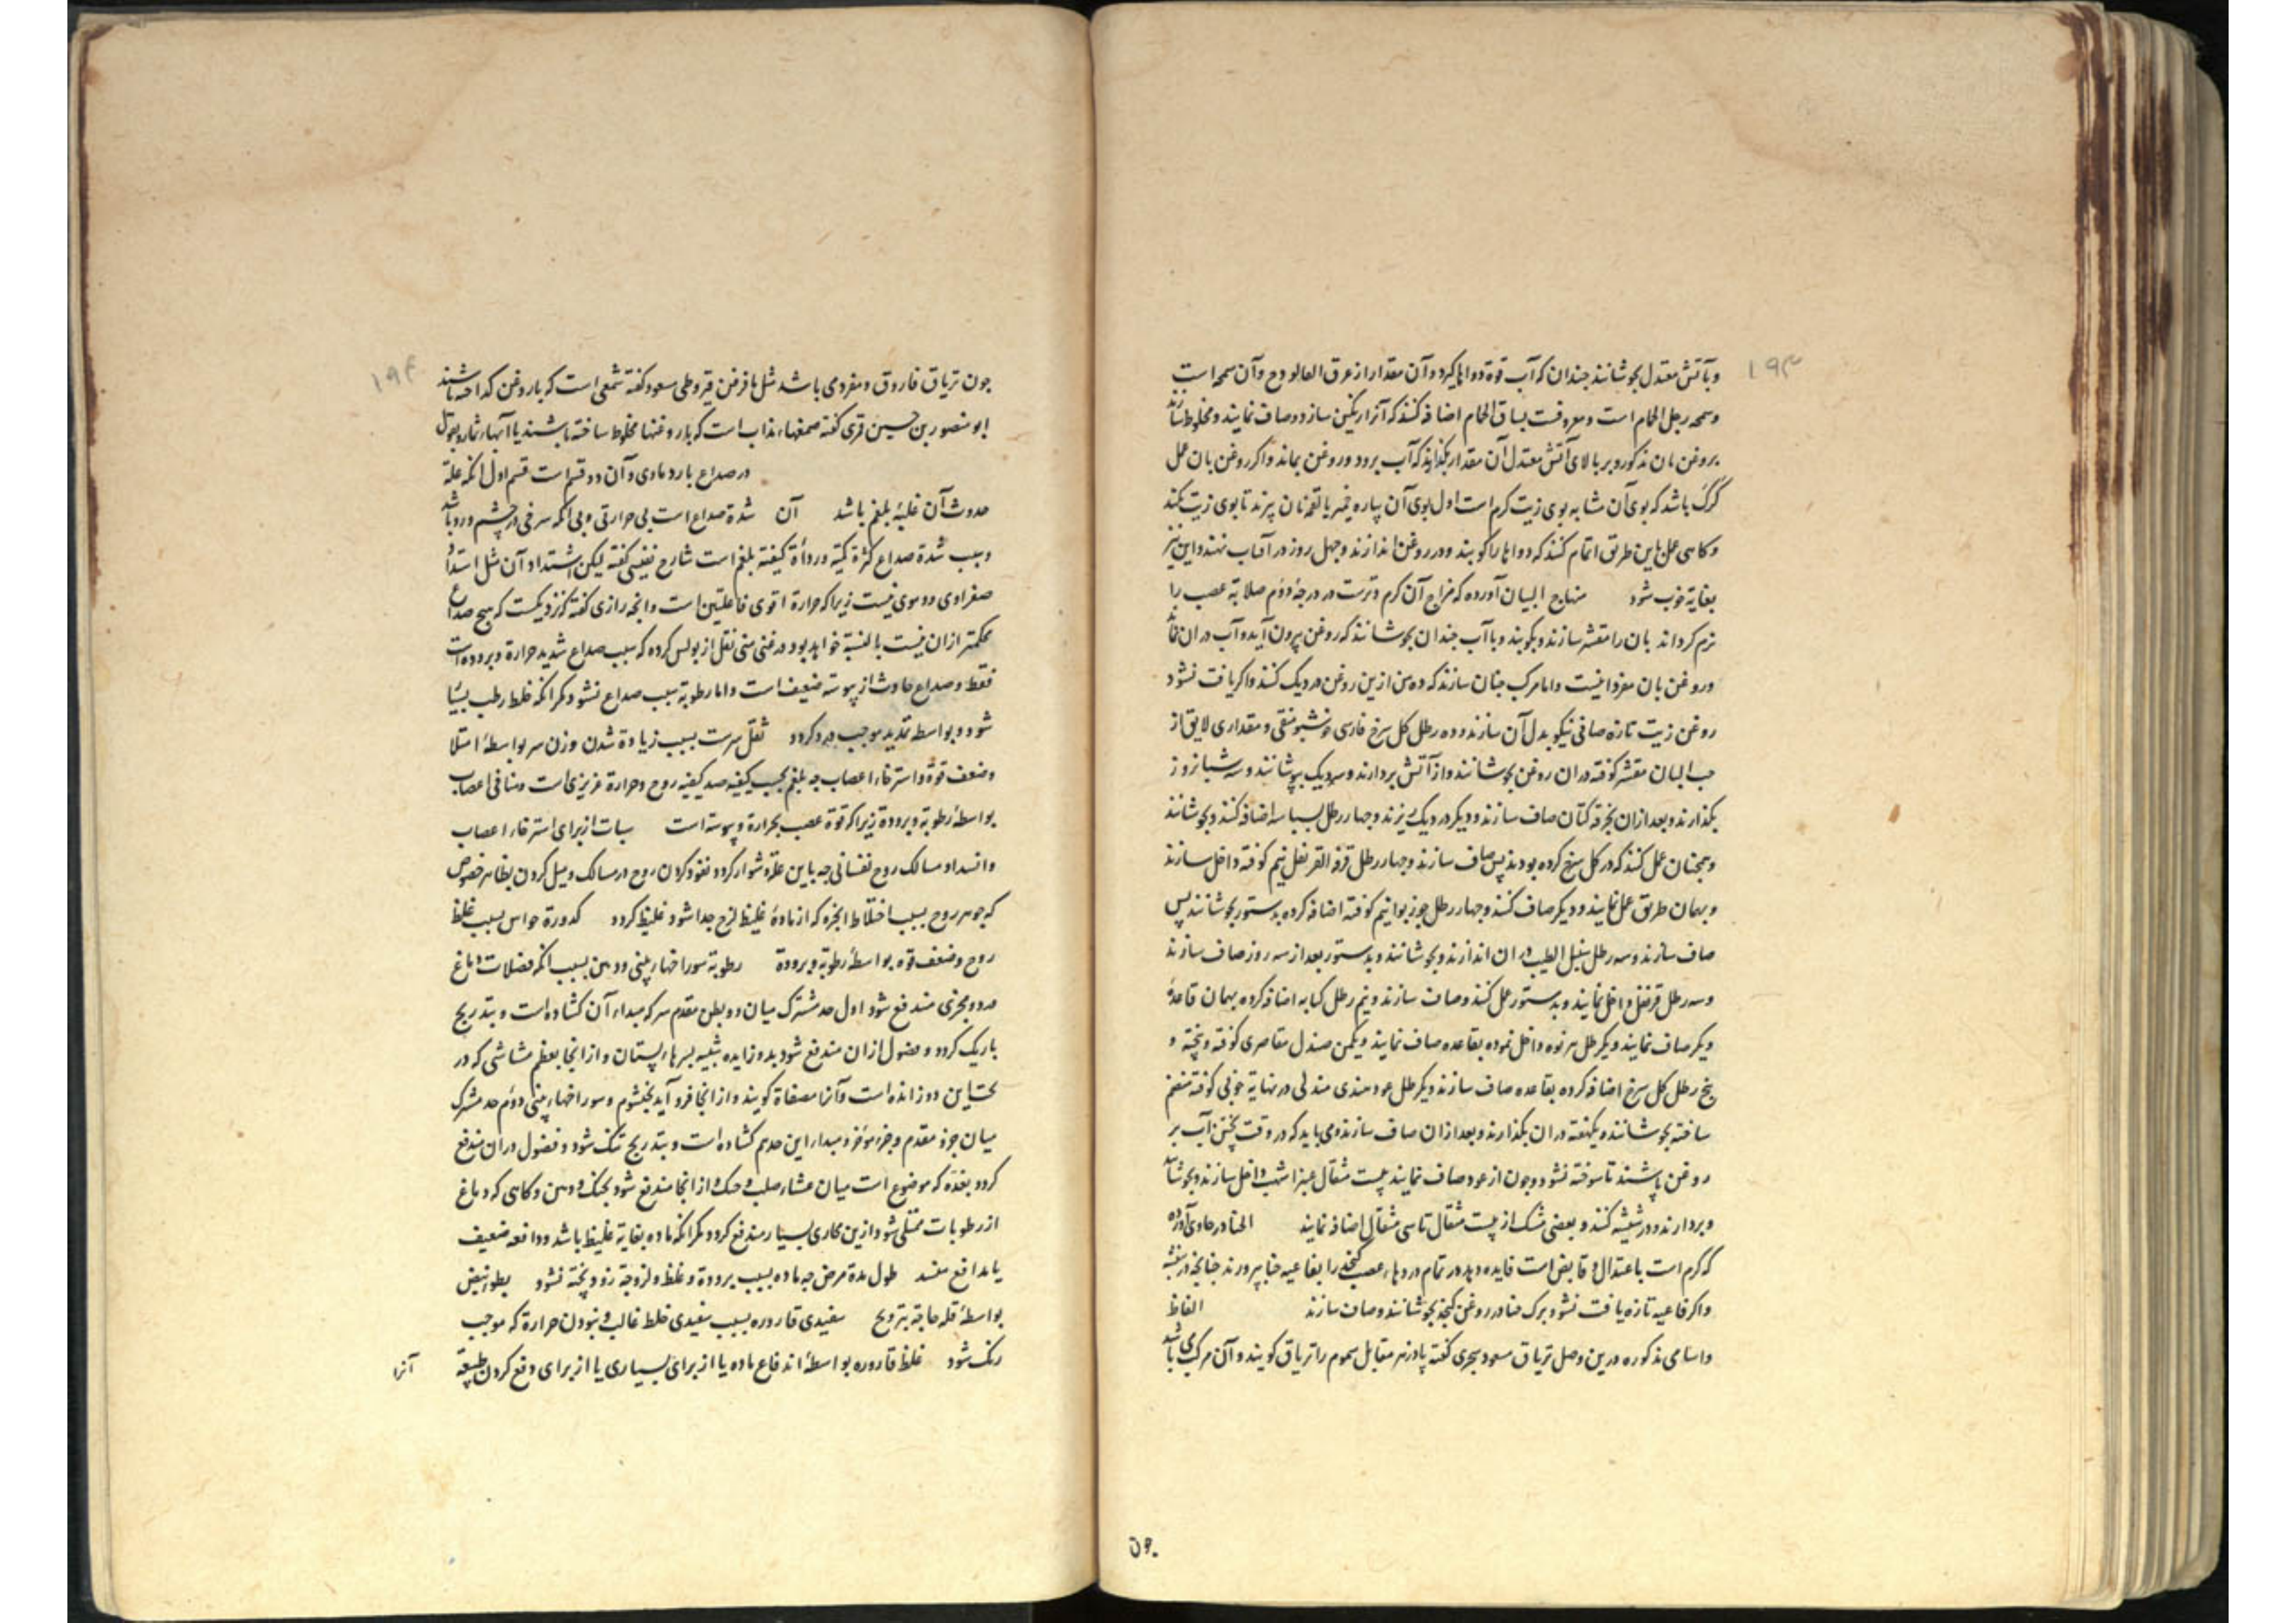 ۱۹۳
وبآتش معتدل بجوشانند چندان که آب قوة دواها گیرد و آن مقدار از عرق الفالوذج و آن سمحه است
وسمحه رجل الحمام است و معروفست بساق الحمام اضافه کنند که آنرا رنگین سازد و صاف نمایند و مخلوط سازند
بروغن بان مذکور و بر بالای آتش معتدل آن مقدار بگذارند که آب برود و روغن بماند و اکر روغن بان عمل
کرک باشد که بوی آن مشابه بوی زیت کرم است اول بوی آن بپاره خمیر یا لقمه نان ببرند تا بوی زیت نکند
و کاهی عمل باین طریق اتمام کنند که دواها را کوبند و در روغن اندازند و چهل روز در آفتاب نهند و این نیز
بغایة خوب شود منهاج البیان آورده که مزاج آن کرم و ترست در درجهٔ دوم صلابة عصب را
نرم کرداند بان را مقشر سازند و بکوبند و با آب چندان بجوشانند که روغن بیرون آید و آب در ان نماند
و روغن بان مفردا نیست و اما مرکب چنان سازند که ده من ازین روغن در دیک کنند و اکر یافت نشود
روغن زیت تازه صافی نیکو بدل آن سازند و ده رطل کل سرخ فارسی خوشبو منقی و مقداری لایق از
حب البان مقشر کوفته در ان روغن بجوشانند و از آتش بردارند و سر دیک بپوشانند و سه شبانروز
بگذارند و بعد ازان بخرقه کتان صاف سازند و دیکر در دیک ریزند و چهار رطل بسباسه اضافه کنند و بجوشانند
و همچنان عمل کنند که در کل سرخ کرده بودند پس صاف سازند و چهار رطل قرفة القرنفل نیم کوفته داخل سازند
و بهمان طریق عمل نمایند و دیکر صاف کنند و چهار رطل جوز بوا نیم کوفته اضافه کرده بدستور بجوشانند پس
صاف سازند و سه رطل سنبل الطیب در ان اندازند و بجوشانند و بدستور بعد از سه روز صاف سازند
و سه رطل قرنفل داخل نمایند و بدستور عمل کنند و صاف سازند و نیم رطل کبابه اضافه کرده بهمان قاعدهٔ
دیکر صاف نمایند و یکرطل هرنوه داخل نموده بقاعده صاف نمایند و یکمن صندل مقاصری کوفته و پخته و
پنج رطل کل سرخ اضافه کرده بقاعده صاف سازند و یکرطل عود هندی مندلی در نهایة خوبی کوفته منعم
ساخته بجوشانند و یکهفته در ان بگذارند و بعد ازان صاف سازند و می باید که در وقت پختن آب بر
روغن پاشند تا سوخته نشود و چون از عود صاف نمایند بیست مثقال عنبر اشهب داخل سازند و بجوشانند
و بردارند و در شیشه کنند و بعضی مشک از بیست مثقال تا سی مثقال اضافه نمایند الحنا در حاوی آورده
که کرم است باعتدال و قابض است فایده دهد در تمام دردهاء عصب کنجد را بفاغیه حنا بپرورند چنانچه در بنفشه
و اکر فاغیه تازه یافت نشود برک حنا در روغن کنجد بجوشانند و صاف سازند الفاظ
و اسامی مذکوره درین وصل تریاق مسعود سجزی کفته پادزهر مقابل سموم را تریاق کویند و آن مرکب می باشد
۵۹۰
۱۹۴
چون تریاق فاروق و مفردی باشد مثل بافرفین قیروطی مسعود کفته شمعی است که با روغن کداخته باشند
ابو منصور بن حسین قمری کفته صمغهاء مذاب است که با روغنها مخلوط ساخته باشند یا آبهاء ثمار و بقول
در صداع بارد مادی و آن دو قسم است قسم اول آنکه علة
حدوث آن غلبهٔ بلغم باشد آن شدة صداع است بی حرارتی و بی آنکه سرخی در چشم و رو باشد
و سبب شدة صداع کثرة کمیة و رداءة کیفیة بلغم است شارح نفیسی کفته لیکن اشتداد آن مثل اشتداد
صفراوی و دموی نیست زیرا که حرارة اقوی فاعلتین است و آنچه رازی کفته که نزدیکست که هیچ صداع
محکمتر ازان نیست بالنسبة خواهد بود و در غنی منی نقل از بولس کرده که سبب صداع شدید حرارة و برودة است
فقط و صداع حادث از یبوسة ضعیف است و اما رطوبة سبب صداع نشود مکر آنکه خلط رطب بسیار
شود و بواسطه تمدید موجب درد کردد ثقل سرست بسبب زیادة شدن وزن سر بواسطهٔ امتلا
و ضعف قوة و استرخاء اعصاب چه بلغم بحسب کیفیة ضد کیفیة روح و حرارة غریزی است و منافی اعصاب
بواسطهٔ رطوبة و برودة زیرا که قوة عصب بحرارة و یبوسة است سبات از برای استرخاء اعصاب
و انسداد مسالک روح نفسانی چه باین علة دشوار کردد نفوذ کردن روح در مسالک و میل کردن بظاهر خصوص
که جوهر روح بسبب اختلاط ابخره که از مادهٔ غلیظ لزج جدا شود غلیظ کردد کدورة حواس بسبب غلظ
روح و ضعف قوه بواسطهٔ رطوبة و برودة رطوبة سوراخهاء بینی و دهن بسبب آنکه فضلات دماغ
در دو مجری مندفع شود اول حد مشترک میان دو بطن مقدم سر که مبداء آن کشاده است و بتدریج
باریک کردد و فضول ازان مندفع شود بدو زایده شبیه بسرهاء پستان و از انجا بعظم مشاشی که در
تحت این دو زائده است و آنرا مصفاة کویند و از انجا فرود آید بخیشوم و سوراخهاء بینی دوم حد مشترک
میان جزؤ مقدم و جزء مؤخر و مبداء این حد هم کشاده است و بتدریج تنک شود و فضول در ان مندفع
کردد بغده که موضوع است میان غشاء صلب و حنک و از انجا مندفع شود بحنک و دهن و کاهی که دماغ
از رطوبات ممتلی شود ازین مجاری بسیار مندفع کردد مکر آنکه ماده بغایة غلیظ باشد و دافعه ضعیف
یا مدافع منسد طول مدة مرض چه ماده بسبب برودة و غلظ و لزوجة زود پخته نشود بطوء نبض
بواسطهٔ قلة حاجة بترویح سفیدی قاروره بسبب سفیدی خلط غالب و نبودن حرارة که موجب
رنک شود غلظ قاروره بواسطهٔ اندفاع ماده یا از برای بسیاری یا از برای دفع کردن طبیعة
آنرا